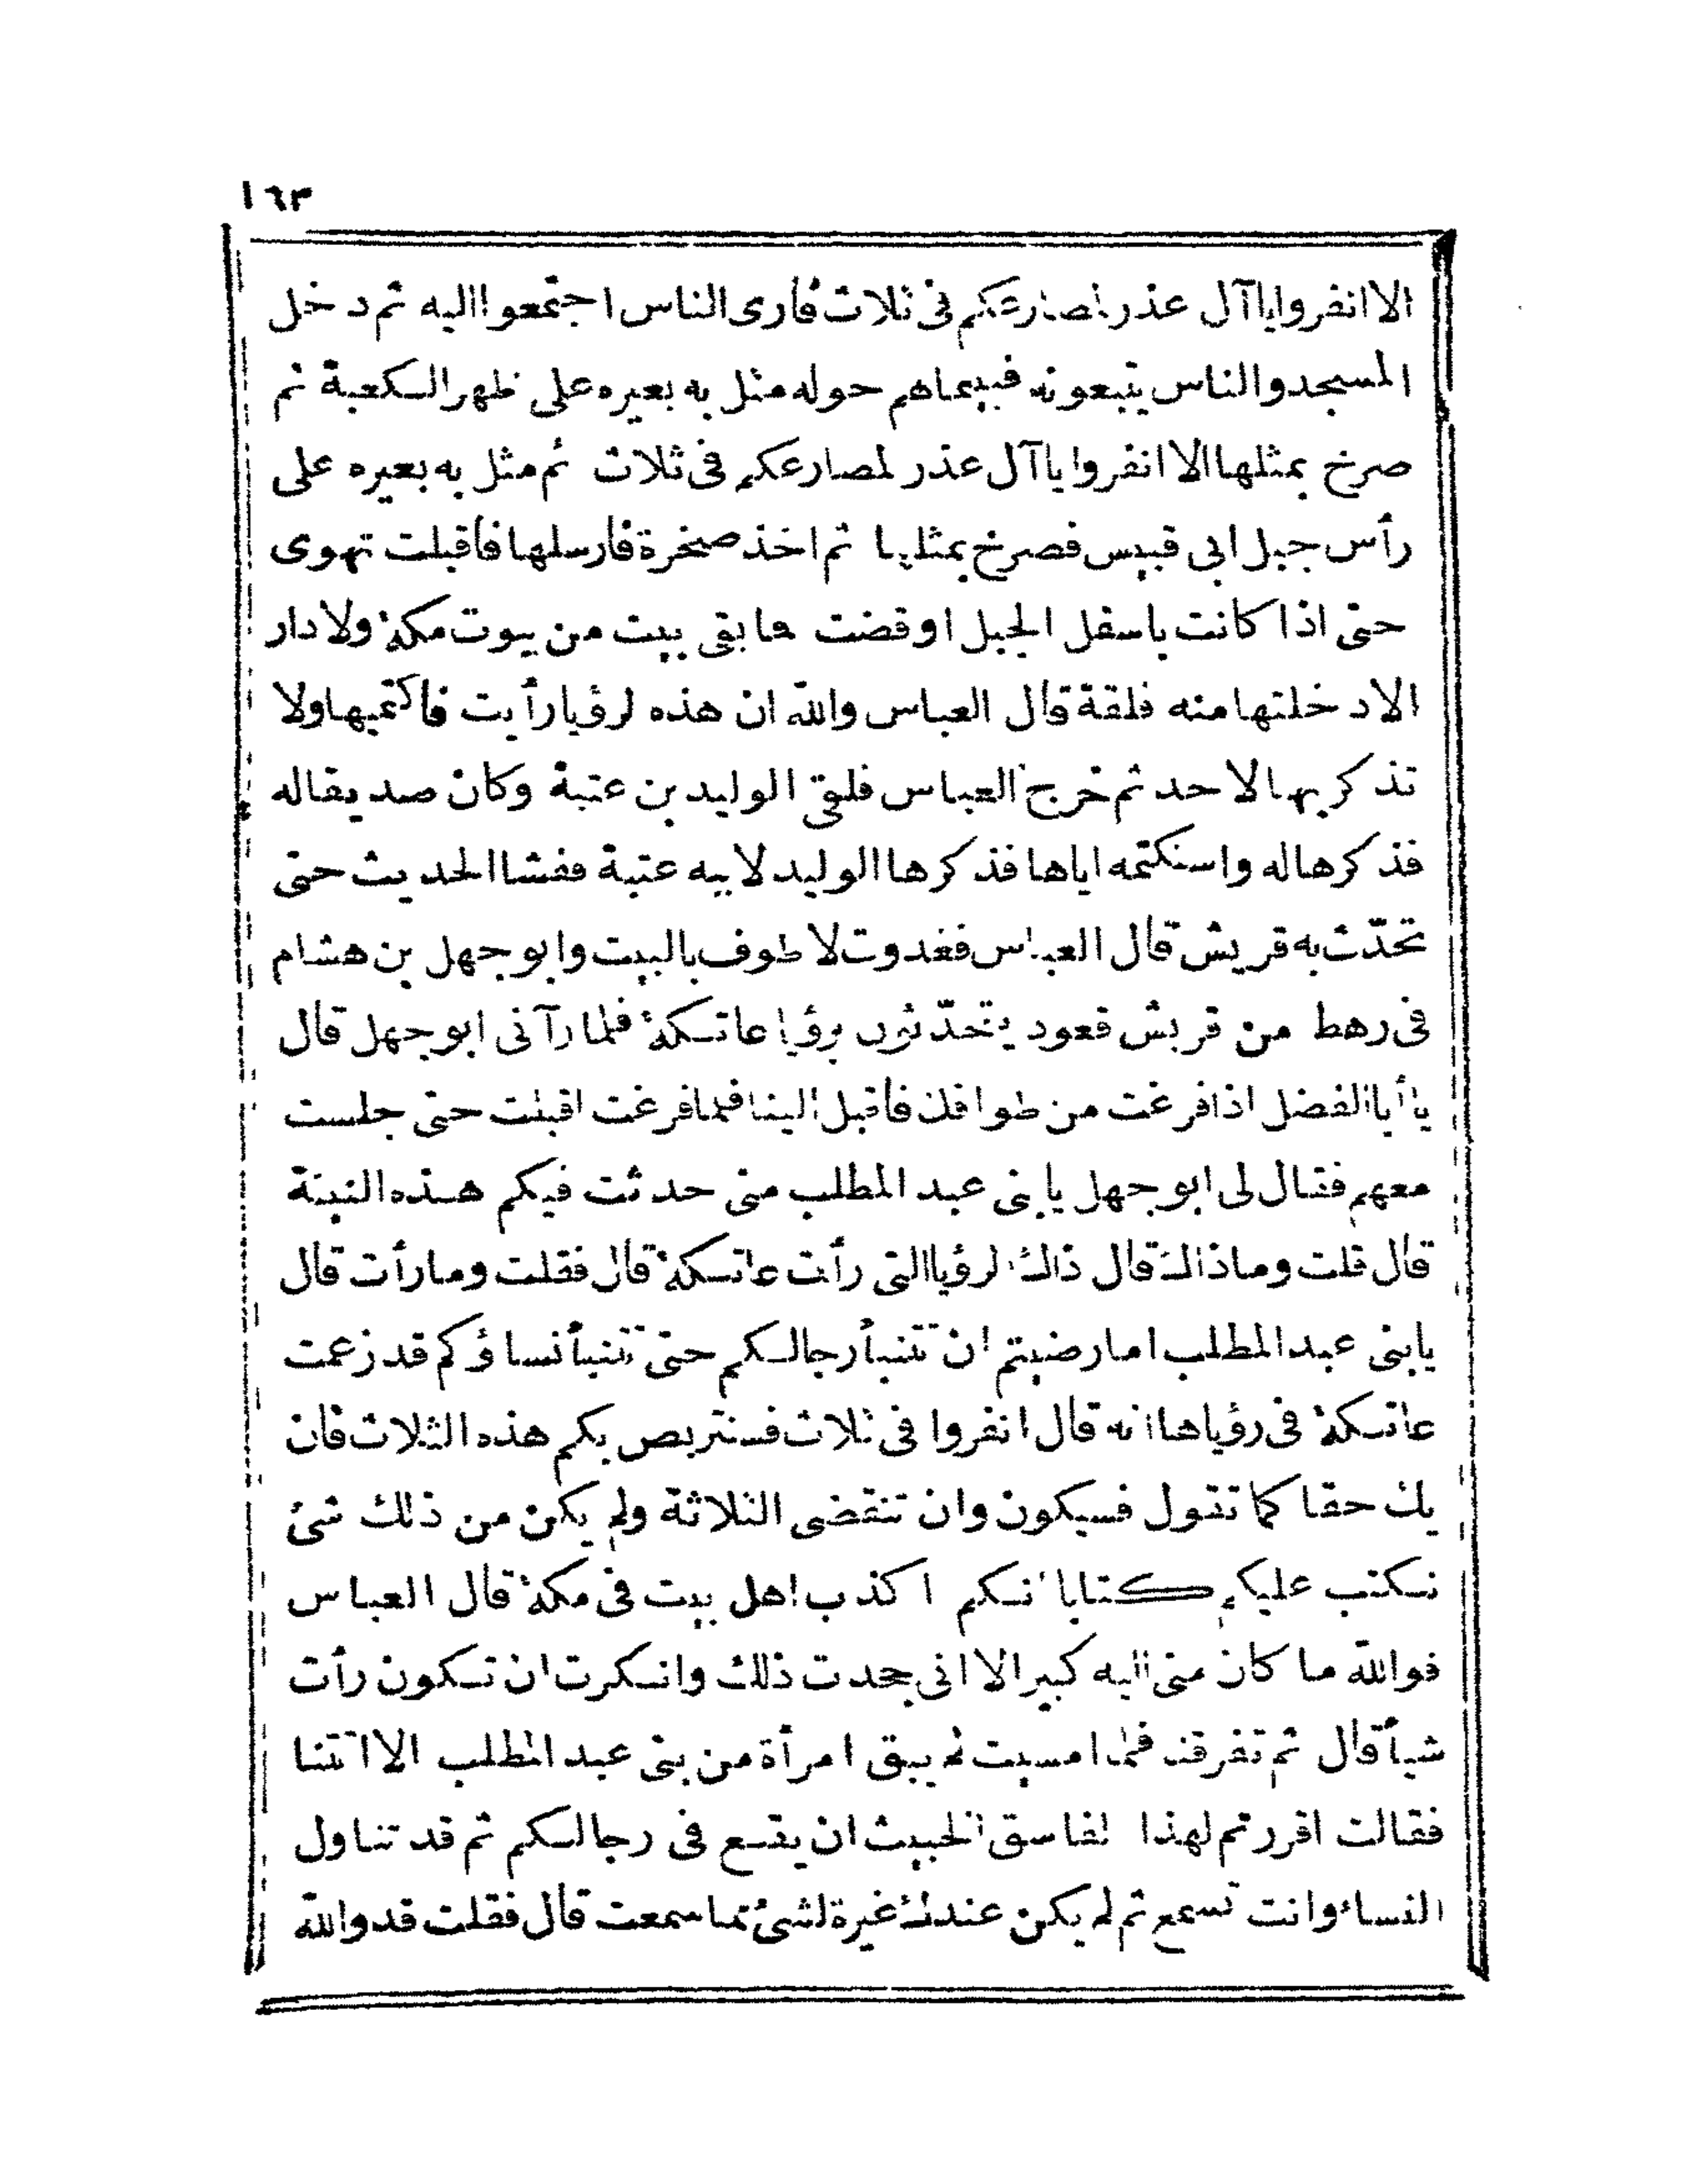 ١٦٣
الا انفروا يا آل عذر لمصارعكم فى ثلاث فأرى الناس اجتمعوا اليه ثم دخل
المسجد والناس يتبعونه فبينماهم حوله مثل به بعيره على ظهر الكعبة ثم
صرخ بمثلها الا انفروا يا آل عذر لمصارعكم فى ثلاث ثم مثل به بعيره على
رأس جبل ابى قبيس فصرخ بمثلها ثم اخذ صخرة فأرسلها فأقبلت تهوى
حتى اذا كانت باسفل الجبل اوقضت فما بقى بيت من بيوت مكة ولا دار
الا دخلتها منه فلقة قال العباس والله ان هذه لرؤيا رأيت فاكتميها ولا
تذكريها لاحد ثم خرج العباس فلقى الوليد بن عتبة وكان صديقا له
فذكرها له واستكتمه اياها فذكرها الوليد لابيه عتبة ففشا الحديث حتى
تحدّث به قريش قال العباس فغدوت لاطوف بالبيت وابو جهل بن هشام
فى رهط من قريش قعود يتحدّثون برؤيا عاتكة فلما رآنى ابو جهل قال
يا أبا الفضل اذا فرغت من طوافك فأقبل الينا فلما فرغت اقبلت حتى جلست
معهم فقال لى ابو جهل يا بنى عبد المطلب متى حدثت فيكم هذه النبية
قال قلت وما ذاك قال ذاك الرؤيا التى رأت عاتكة قال فقلت وما رأت قال
يا بنى عبد المطلب اما رضيتم ان تتنبأ رجالكم حتى تتنبأ نساؤكم قد زعمت
عاتكة فى رؤياها انه قال انفروا فى ثلاث فسنتربص بكم هذه الثلاث فان
يك حقا كما تقول فسيكون وان تنقضى الثلاثة ولم يكن من ذلك شئ
نكتب عليكم كتابا انكم اكذب اهل بيت فى مكة قال العباس
فوالله ما كان منى اليه كبير الا انى جحدت ذلك وانكرت ان تكون رأت
شيأ قال ثم تفرقنا فلما امسيت لم يبق امرأة من بنى عبد المطلب الا اتتنا
فقالت اقررتم لهذا الفاسق الخبيث ان يقع فى رجالكم ثم قد تناول
النساء وانت تسمع ثم لم يكن عندك غيرة لشئ مما سمعت قال فقلت قد والله